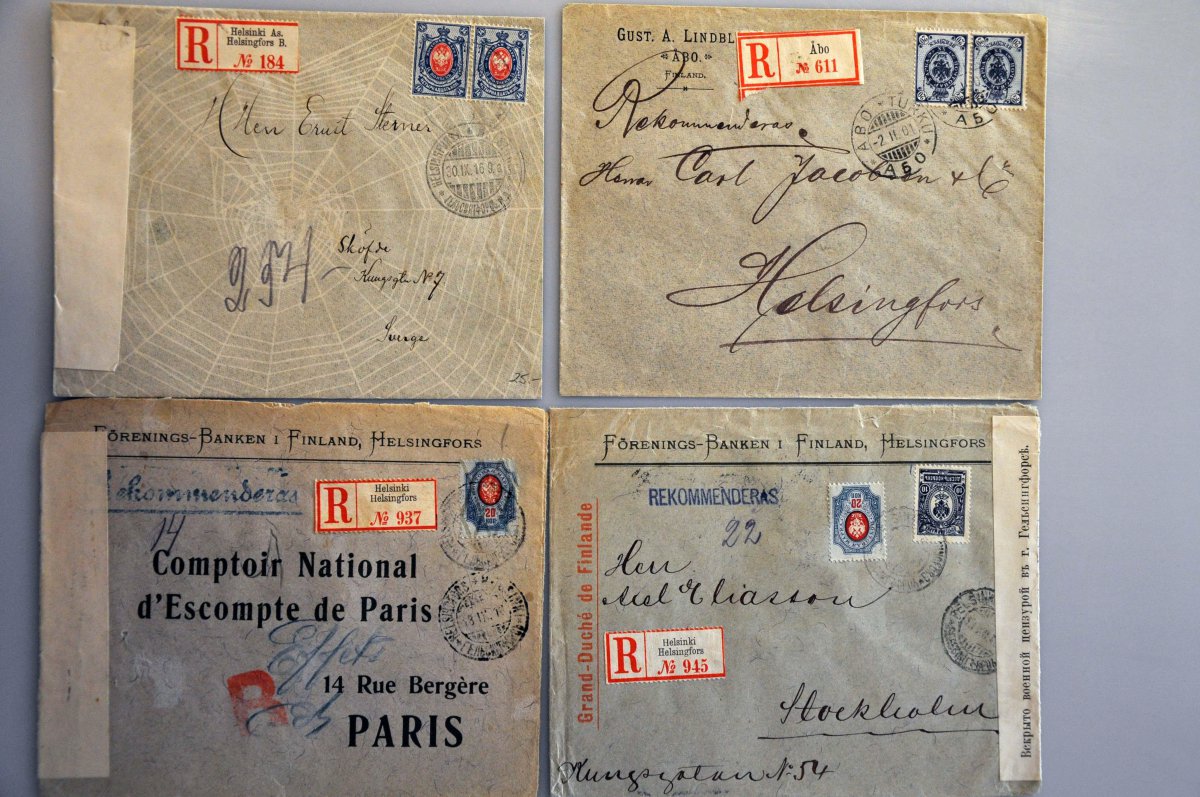 R
Helsinki As.
Helsingfors B.
№ 184
Herr Ernst Sterner
30.IX.16
234
Sköfde
Kungsgtn No 7
Sverge
25.-
GUST. A. LINDBL
ÅBO.
FINLAND.
R
Åbo
№ 611
Rekommenderas
ÅBO TURKU
-2.II.01
АБО
АБО
Herrar Carl Jacobsen & Co
Helsingfors
FÖRENINGS-BANKEN I FINLAND, HELSINGFORS
Rekommenderas
14
R
Helsinki
Helsingfors
№ 937
20
Comptoir National
d'Escompte de Paris
Effets
14 Rue Bergère
R
PARIS
FÖRENINGS-BANKEN I FINLAND, HELSINGFORS
REKOMMENDERAS
22
20
10
Grand-Duché de Finlande
Herr
Axel Eliasson
R
Helsinki
Helsingfors
№ 945
Stockholm
Kungsgatan No 54
Вскрыто военной цензурой въ г. Гельсингфорсѣ.